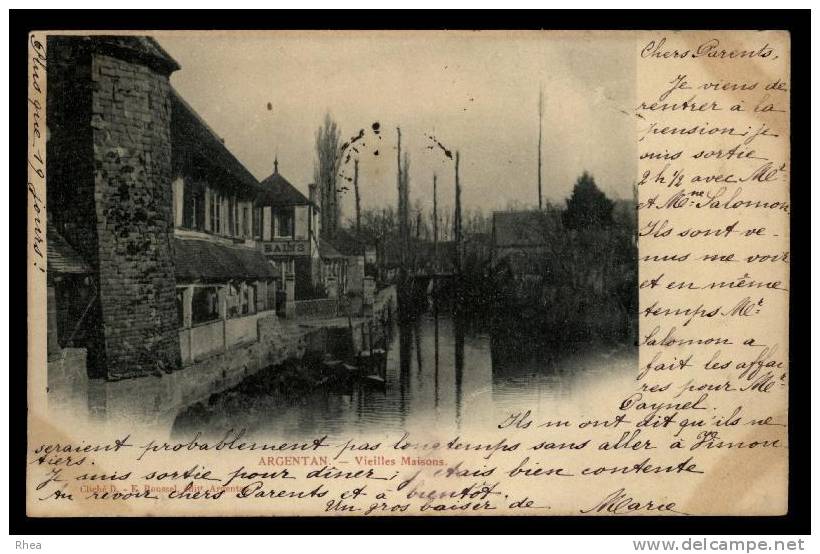 Plus que 19 jours!
Chers Parents,
Je viens de
rentrer à la
pension; je
suis sortie
2 h ½ avec Mr
et Mme Salomon.
Ils sont ve-
nus me voir
et en même
temps Mr
Salomon a
fait les affai
res pour Mr
Paynel.
Ils m ont dit qu'ils ne
seraient probablement pas longtemps sans aller à Vimou
tiers.
Je suis sortie pour dîner, j'étais bien contente
Au revoir chers Parents et à bientôt.
Un gros baiser de Marie
BAINS
ARGENTAN. — Vieilles Maisons.
Cliché D. - E. Roussel, édit. Argentan
Rhea
http://www.delcampe.net